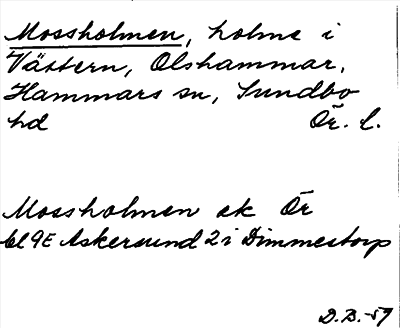 Mossholmen, holme i
Vättern, Olshammar,
Hammars sn, Sundbo
hd Ör. l.
Mossholmen ek Ör
bl 9E Askersund 2 i Dimmestorp
D.B.-59